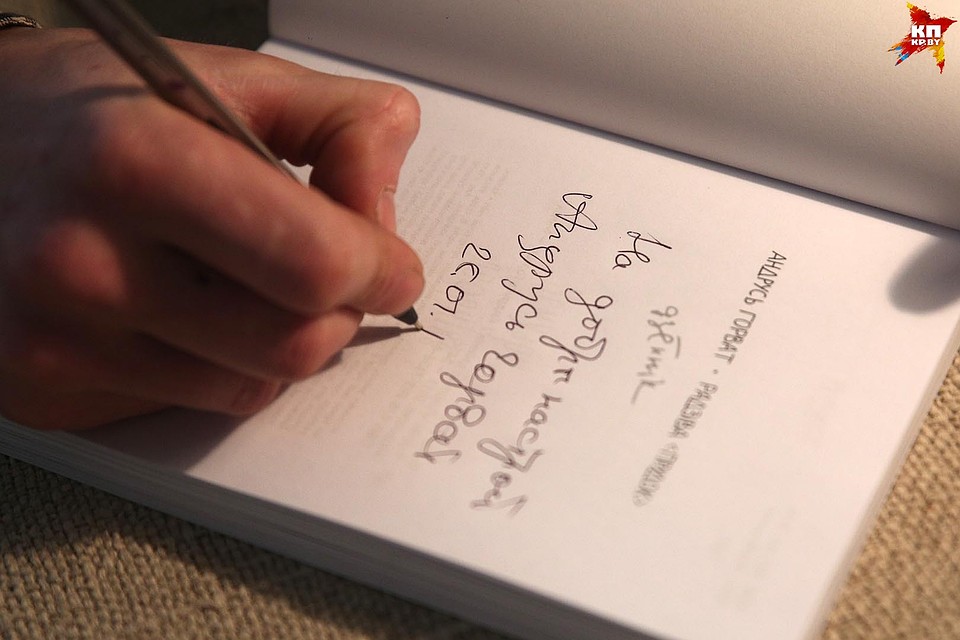 КП
KP.BY
АНДРУСЬ ГОРВАТ • РАДЗІВА «ПРУДОК»
дзённік
На добры настрой
Андрусь Горват
26.01.1